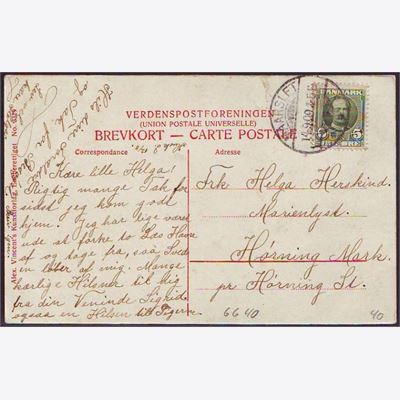 VERDENSPOSTFORENINGEN
(UNION POSTALE UNIVERSELLE)
BREVKORT — CARTE POSTALE
Correspondance
Adresse
DANMARK
5 5
Kære lille Helga!
Rigtig mange Tak for
sidst jeg kom godt
hjem. Jeg har lige været
ude at
af og tage fra, saa Sved
en løber af mig. Mange
kærlige Hilsner til mig
fra din Veninde Sigrid
ogsaa en Hilsen til Pigerne
Frk Helga Herskind.
Marienlyst
Hørning Mark.
pr Hørning St.
6640
40
Alex. Vincent's Kunstforlag, Eneberettiget. No.